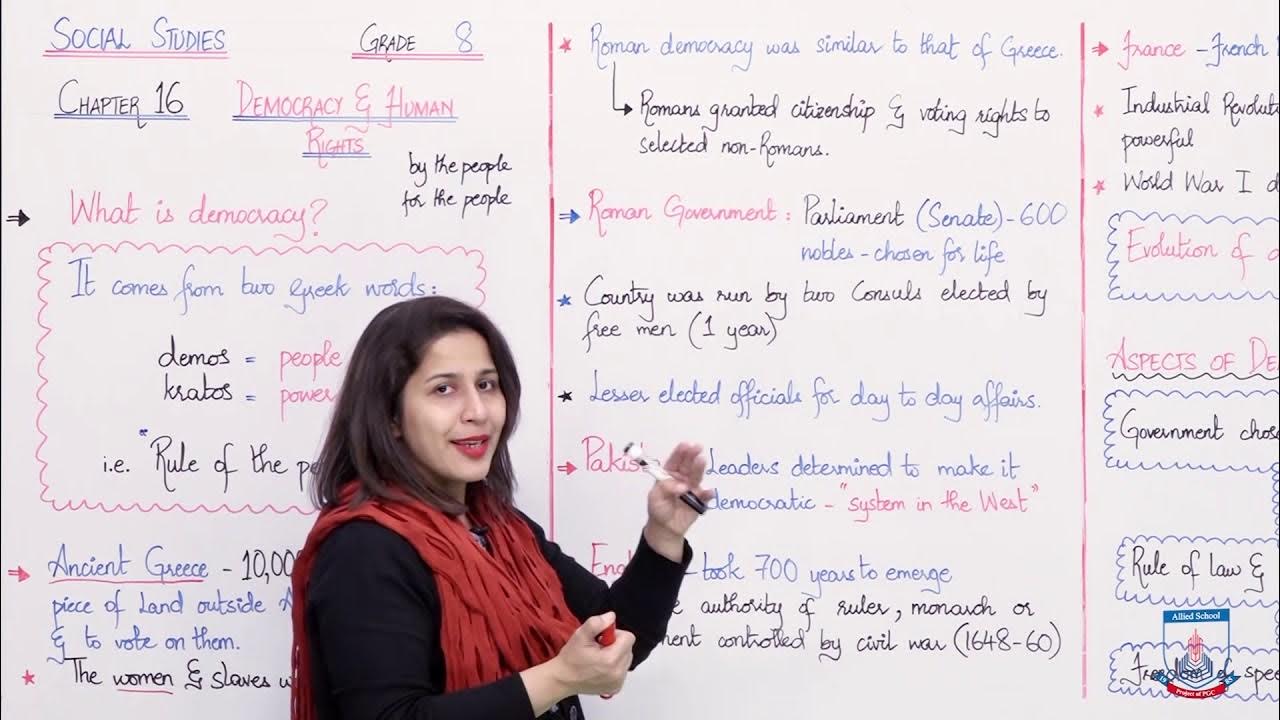 SOCIAL STUDIES
GRADE 8
CHAPTER 16
DEMOCRACY & HUMAN
RIGHTS
by the people
for the people
What is democracy?
It comes from two Greek words:
demos = people
kratos = power
i.e. Rule of the
Ancient Greece - 10,000
piece of land outside
& to vote on them.
The women & slaves
Roman democracy was similar to that of Greece.
Romans granted citizenship & voting rights to
selected non-Romans.
Roman Government: Parliament (Senate) - 600
nobles - chosen for life
Country was run by two Consuls elected by
free men (1 year)
Lesser elected officials for day to day affairs.
Leaders determined to make it
democratic - "system in the West"
- took 700 years to emerge
authority of rulers, monarch or
controlled by civil war (1648-60)
France - French
Industrial
powerful
World War I
Evolution of
ASPECTS OF
Government
Rule of law &
Freedom of
Allied School
Project of PGC